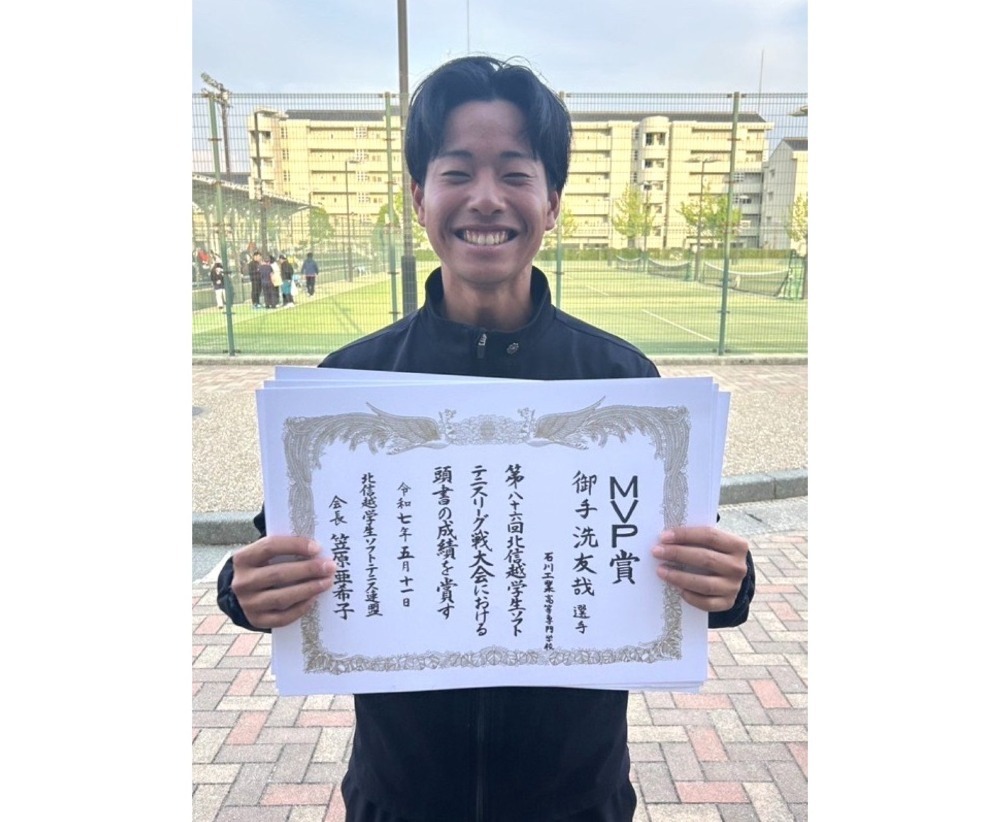 MVP賞
石川工業高等専門学校
御手洗友哉 選手
第八十六回北信越学生ソフト
テニスリーグ戦大会における
頭書の成績を賞す
令和七年五月十一日
北信越学生ソフトテニス連盟
会長 笠原亜希子